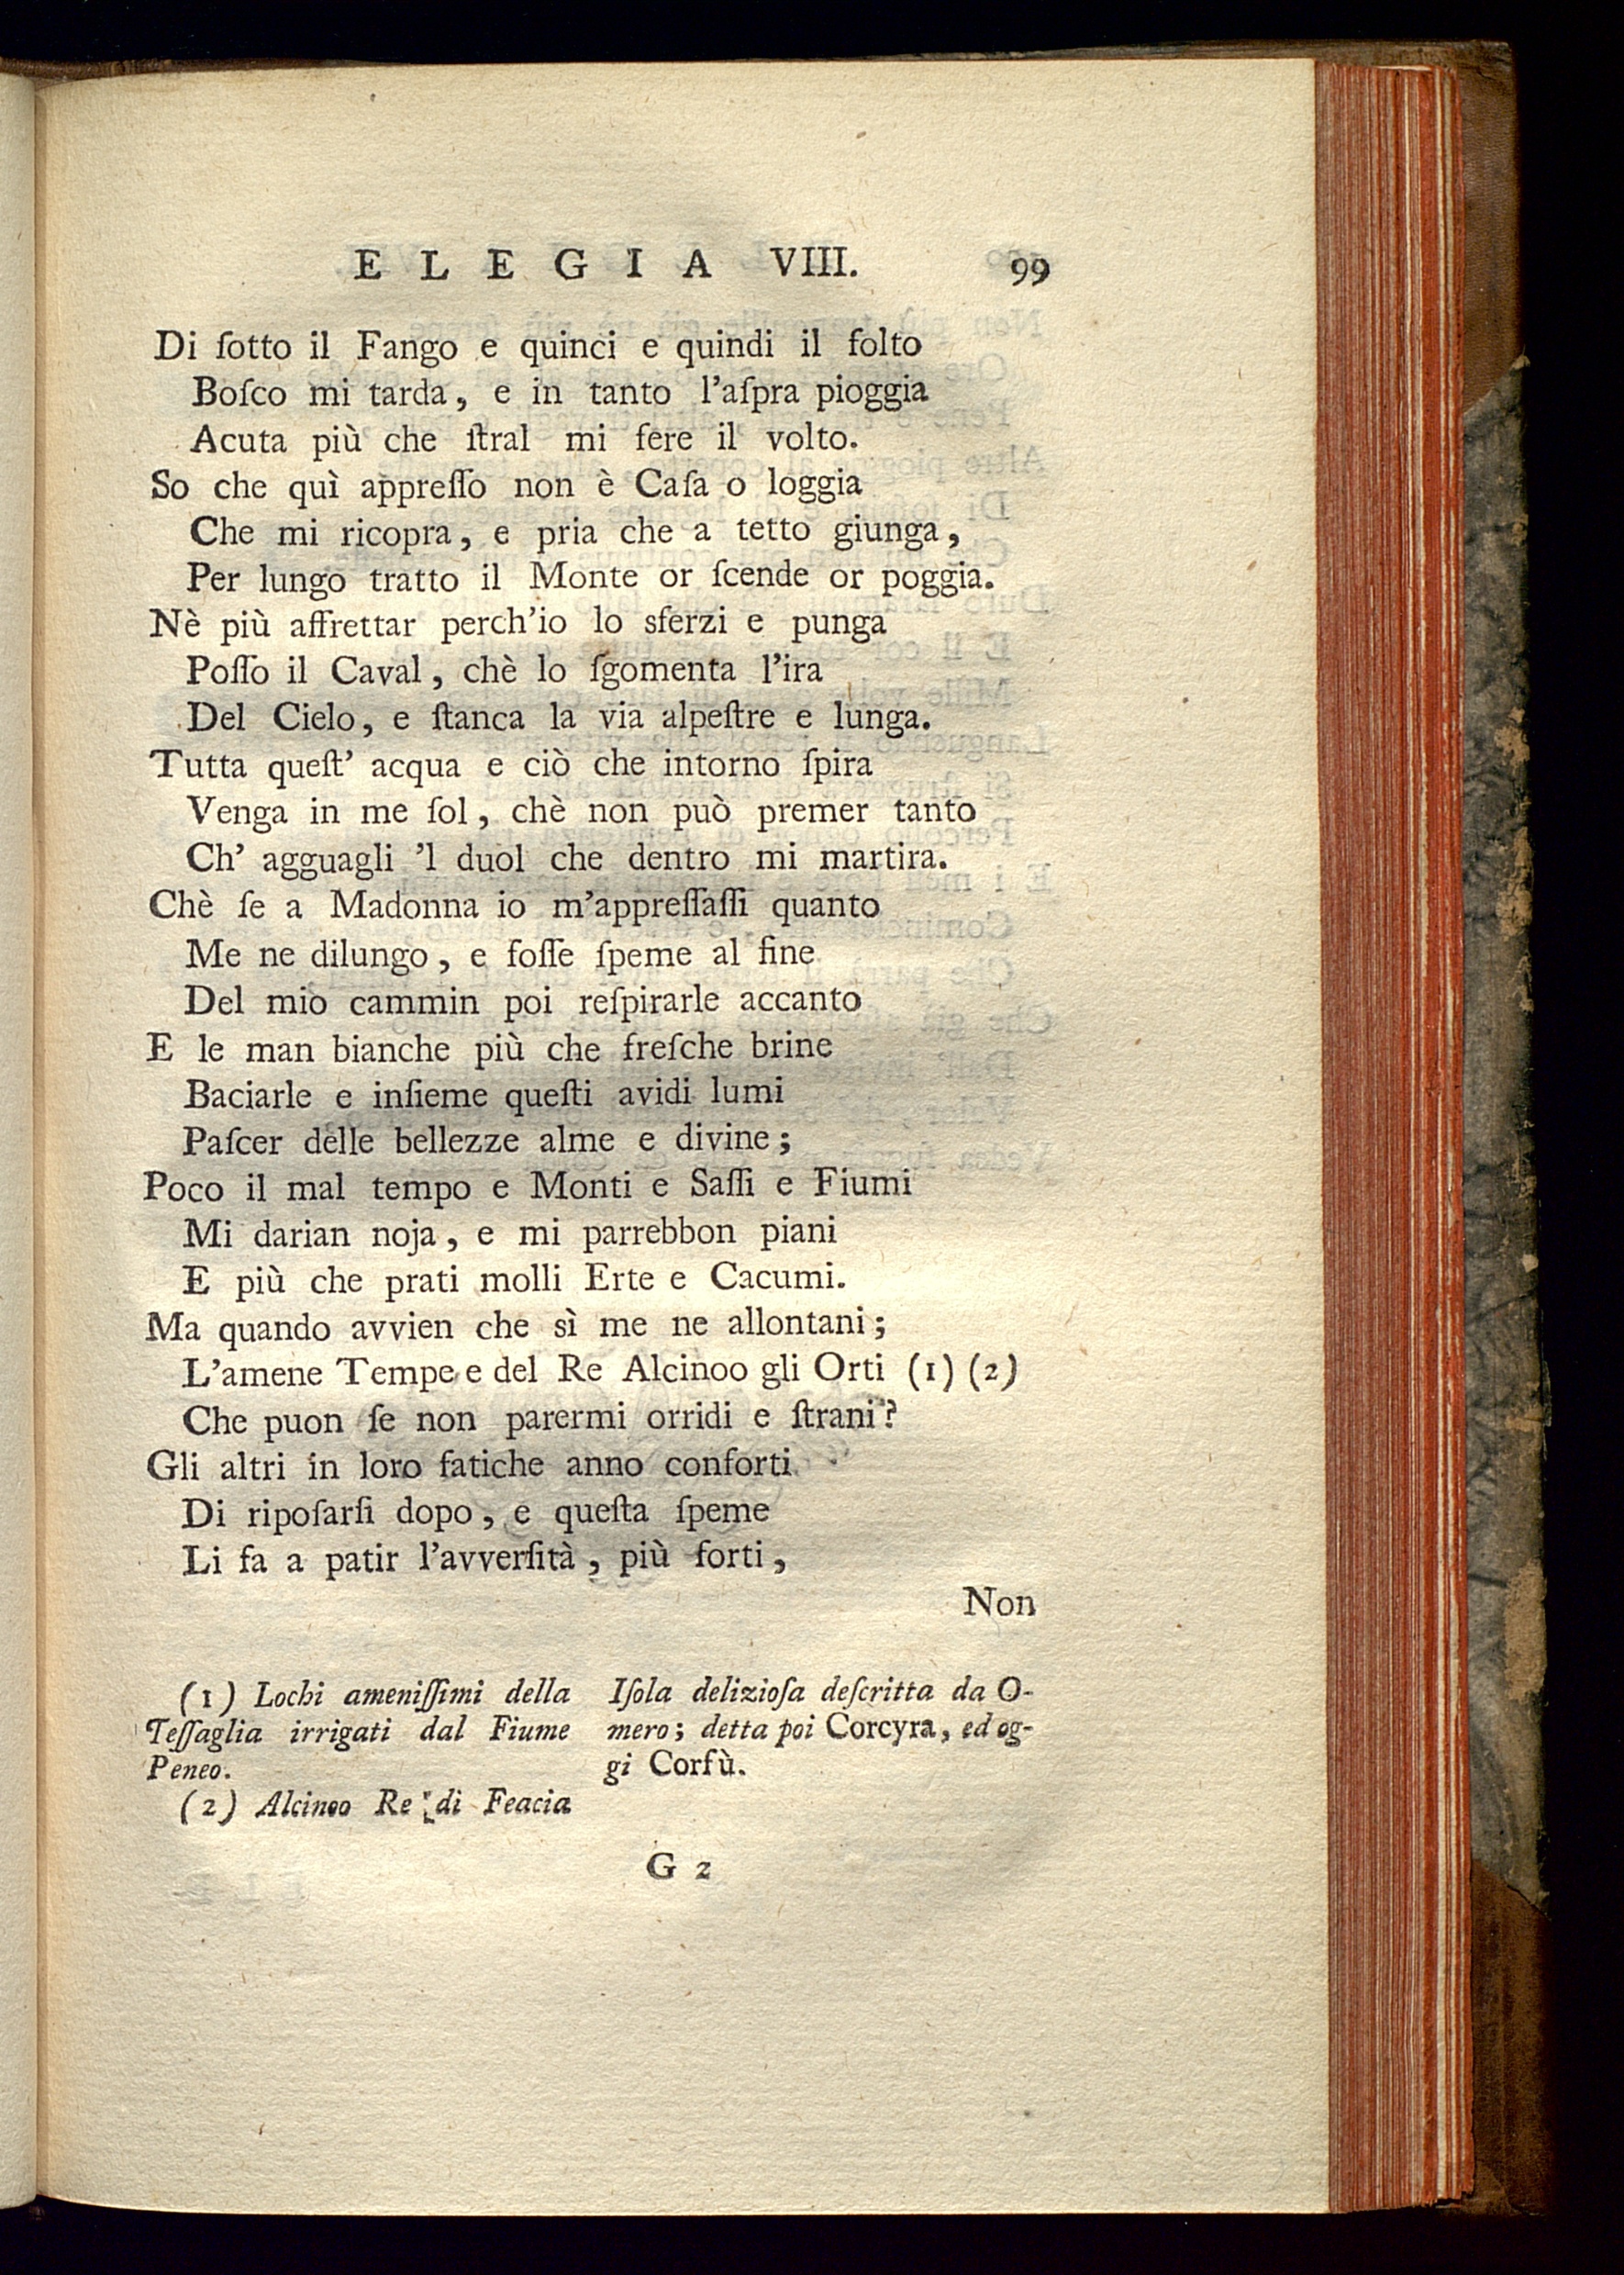 ELEGIA VIII. 99
Di ſotto il Fango e quinci e quindi il folto
Boſco mi tarda, e in tanto l'aſpra pioggia
Acuta più che ſtral mi fere il volto.
So che quì appreſſo non è Caſa o loggia
Che mi ricopra, e pria che a tetto giunga,
Per lungo tratto il Monte or ſcende or poggia.
Nè più affrettar perch'io lo sferzi e punga
Poſſo il Caval, chè lo ſgomenta l'ira
Del Cielo, e ſtanca la via alpeſtre e lunga.
Tutta queſt' acqua e ciò che intorno ſpira
Venga in me ſol, chè non può premer tanto
Ch' agguagli 'l duol che dentro mi martira.
Chè ſe a Madonna io m'appreſſaſſi quanto
Me ne dilungo, e foſſe ſpeme al fine
Del mio cammin poi reſpirarle accanto
E le man bianche più che freſche brine
Baciarle e inſieme queſti avidi lumi
Paſcer delle bellezze alme e divine;
Poco il mal tempo e Monti e Saſſi e Fiumi
Mi darian noja, e mi parrebbon piani
E più che prati molli Erte e Cacumi.
Ma quando avvien che sì me ne allontani;
L'amene Tempe e del Re Alcinoo gli Orti (1) (2)
Che puon ſe non parermi orridi e ſtrani?
Gli altri in loro fatiche anno conforti
Di ripoſarſi dopo, e queſta ſpeme
Li fa a patir l'avverſità, più forti,
Non
(1) Lochi ameniſſimi della
Teſſaglia irrigati dal Fiume
Peneo.
(2) Alcinoo Re di Feacia
Iſola delizioſa deſcritta da O-
mero; detta poi Corcyra, ed og-
gi Corfù.
G 2